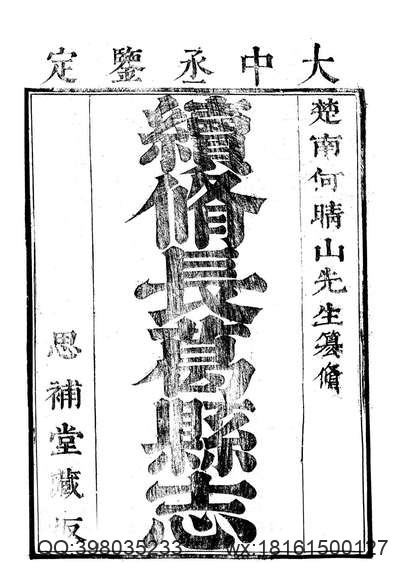 大中丞鑒定
楚南何晴山先生纂脩
續脩長葛縣志
思補堂藏板
QQ:398035233 wx:18161500127